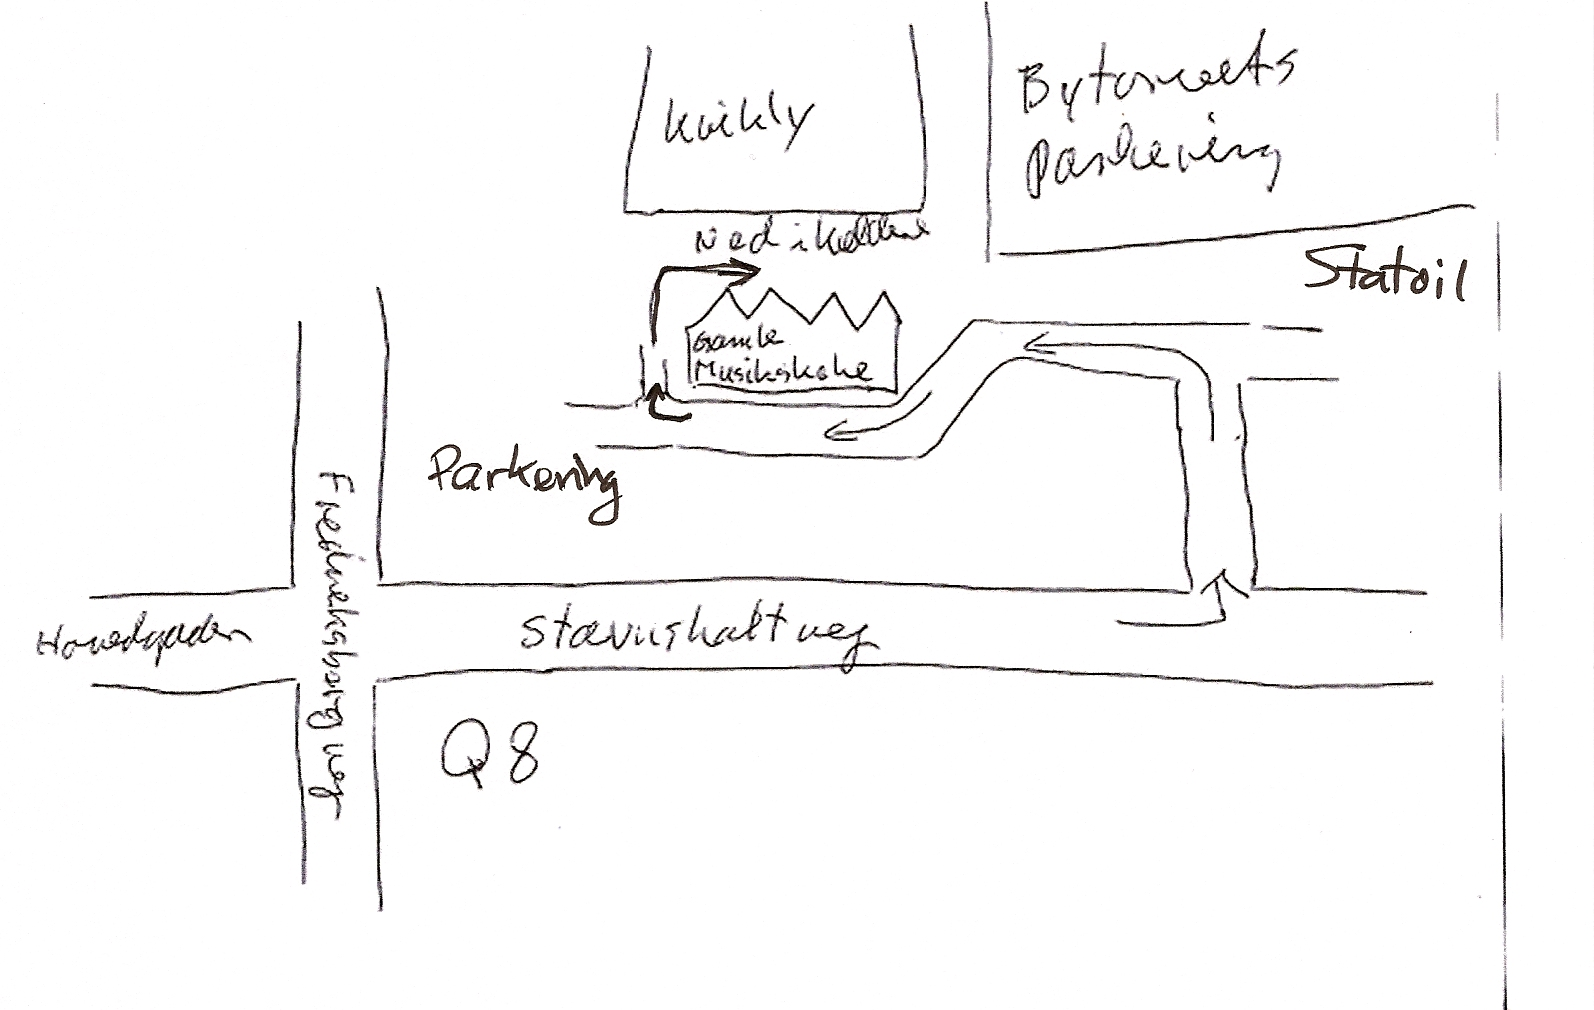 Kvikly
Bytorvets
Parkering
Ned i kælderen
Statoil
Gamle
Musikskole
Parkering
Frederiksborgvej
Hovedgaden
Stavnsholtvej
Q8